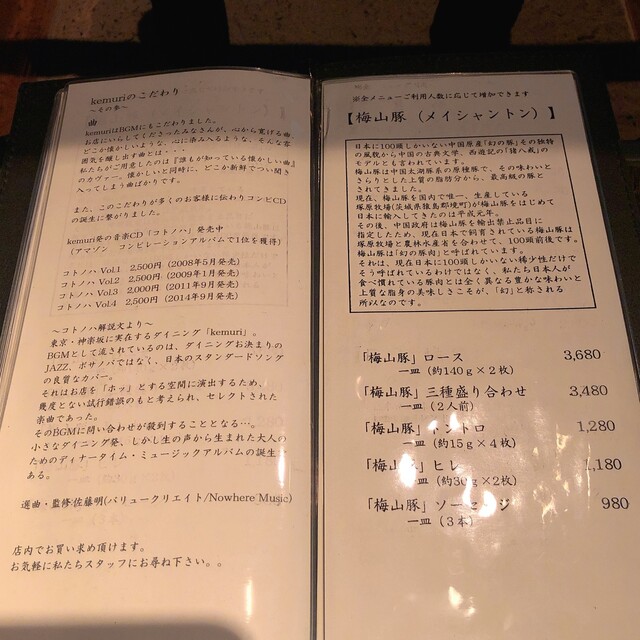 kemuriのこだわり
～その参～
曲
kemuriはBGMにもこだわりました。
お店にいらしてくださったみなさんが、心から寛げる曲
どこか懐かしいような、心に染み入るような、そんな雰
囲気を醸し出す曲とは・・・
私たちがご用意したのは『誰もが知っている懐かしい曲』
のカヴァー。懐かしいと同時に、どこか新鮮でつい聞き
入ってしまう曲ばかりです。
また、このこだわりが多くのお客様に伝わりコンピCD
の誕生に繋がりました。
kemuri発の音楽CD「コトノハ」発売中
(アマゾン コンピレーションアルバムで1位を獲得)
コトノハ Vol.1 2,500円 (2008年5月発売)
コトノハ Vol.2 2,500円 (2009年1月発売)
コトノハ Vol.3 2,000円 (2011年9月発売)
コトノハ Vol.4 2,500円 (2014年9月発売)
～コトノハ解説文より～
東京・神楽坂に実在するダイニング「kemuri」。
BGMとして流されているのは、ダイニングお決まりの
JAZZ、ボサノバではなく、日本のスタンダードソング
の良質なカバー。
それはお店を「ホッ」とする空間に演出するため、
幾度とない試行錯誤のもと考えられ、セレクトされた
楽曲であった。
そのBGMに問い合わせが殺到することとなる…。
小さなダイニング発、しかし生の声から生まれた大人の
ためのディナータイム・ミュージックアルバムの誕生で
ある。
選曲・監修:佐藤明(バリュークリエイト/Nowhere Music)
店内でお買い求め頂けます。
お気軽に私たちスタッフにお尋ね下さい。。
※全メニューご利用人数に応じて増加できます
【梅山豚（メイシャントン）】
日本に100頭しかいない中国原産「幻の豚」その独特
の風貌から中国の古典文学、西遊記の「猪八戒」の
モデルとも言われています。
梅山豚は中国太湖豚系の原種豚で、その味わいと
さらりとした上質の脂肪分から、最高級の豚と
されてきました。
現在、梅山豚を国内で唯一、生産している
塚原牧場(茨城県猿島郡境町)が梅山豚をはじめて
日本に輸入してきたのは平成元年。
その後、中国政府は梅山豚を輸出禁止品目に
指定したため、現在日本で飼育されている梅山豚は
塚原牧場と農林水産省を合わせて、100頭前後です。
梅山豚は「幻の豚肉」と呼ばれています。
それは、現在日本に100頭しかいない稀少性だけで
そう呼ばれているわけではなく、私たち日本人が
食べ慣れている豚肉とは全く異なる豊かな味わいと
上質な脂身の美味しさこそが、「幻」と称される
所以なのです。
「梅山豚」ロース 3,680
一皿（約140g×2枚）
「梅山豚」三種盛り合わせ 3,480
一皿（2人前）
「梅山豚」トントロ 1,280
一皿（約15g×4枚）
「梅山豚」ヒレ 1,180
一皿（約30g×2枚）
「梅山豚」ソーセージ 980
一皿（3本）